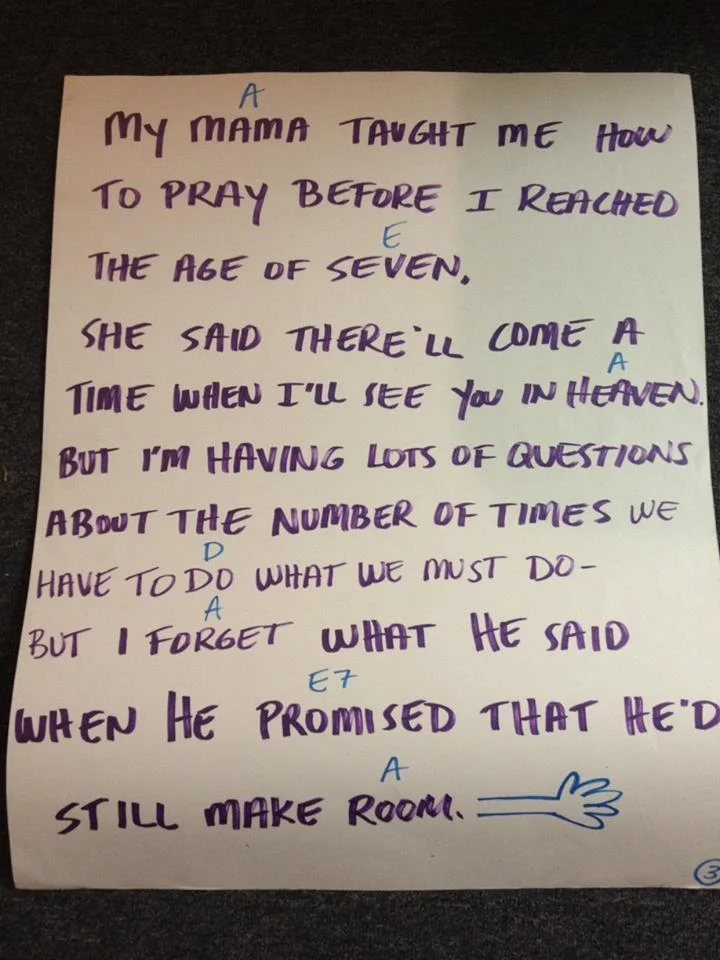 A
MY MAMA TAUGHT ME HOW
TO PRAY BEFORE I REACHED
E
THE AGE OF SEVEN.
SHE SAID THERE'LL COME A
A
TIME WHEN I'LL SEE YOU IN HEAVEN.
BUT I'M HAVING LOTS OF QUESTIONS
ABOUT THE NUMBER OF TIMES WE
D
HAVE TO DO WHAT WE MUST DO-
A
BUT I FORGET WHAT HE SAID
E7
WHEN HE PROMISED THAT HE'D
A
STILL MAKE ROOM.
3